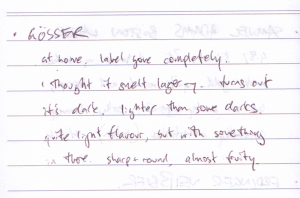 · GÖSSER
at home. label gone completely.
I thought it smelt lager-y. turns out
it's dark. lighter than some darks.
quite light flavour, but with something
in there. sharp + round, almost fruity.